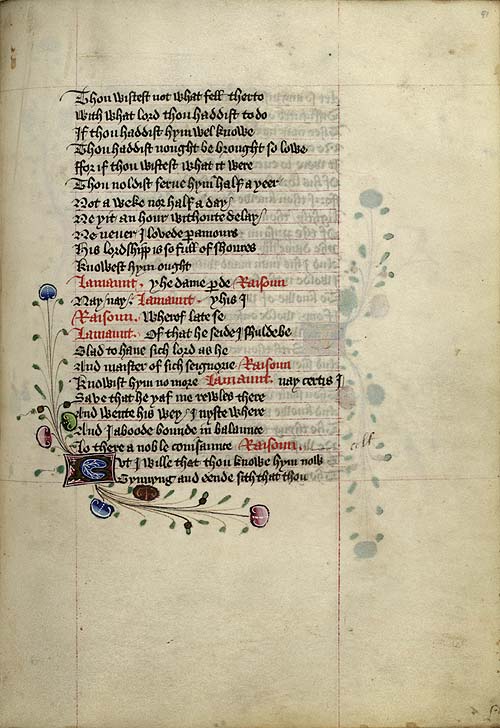 91
Thou wistest not what fell therto
With what lord thou haddist to do
If thou haddist hym wel knowe
Thou haddist nought be brought so lowe
ffor if thou wistest what it were
Thou noldist serve hym half a yeer
Not a weke nor half a day
Ne yit an hour withoute delay
Ne never I lovede paramours
His lordship is so full of shoures
Knowest hym ought
Lamaunt. yhe dame pde Raisoun
Nay nay. Lamaunt. yhis I
Raisoun. Wherof late se
Lamaunt. Of that he seide I shulde be
Glad to have sich lord as he
And maister of sich seignorie Raisoun
Knowist hym no more Lamaunt. nay certis I
Save that he yaf me rewles there
And wente his wey I nyste where
And I aboode bounde in balaunce
Lo there a noble conisaunce Raisoun.
But I wille that thou knowe hym now
Gynnyng and eende sith that thou